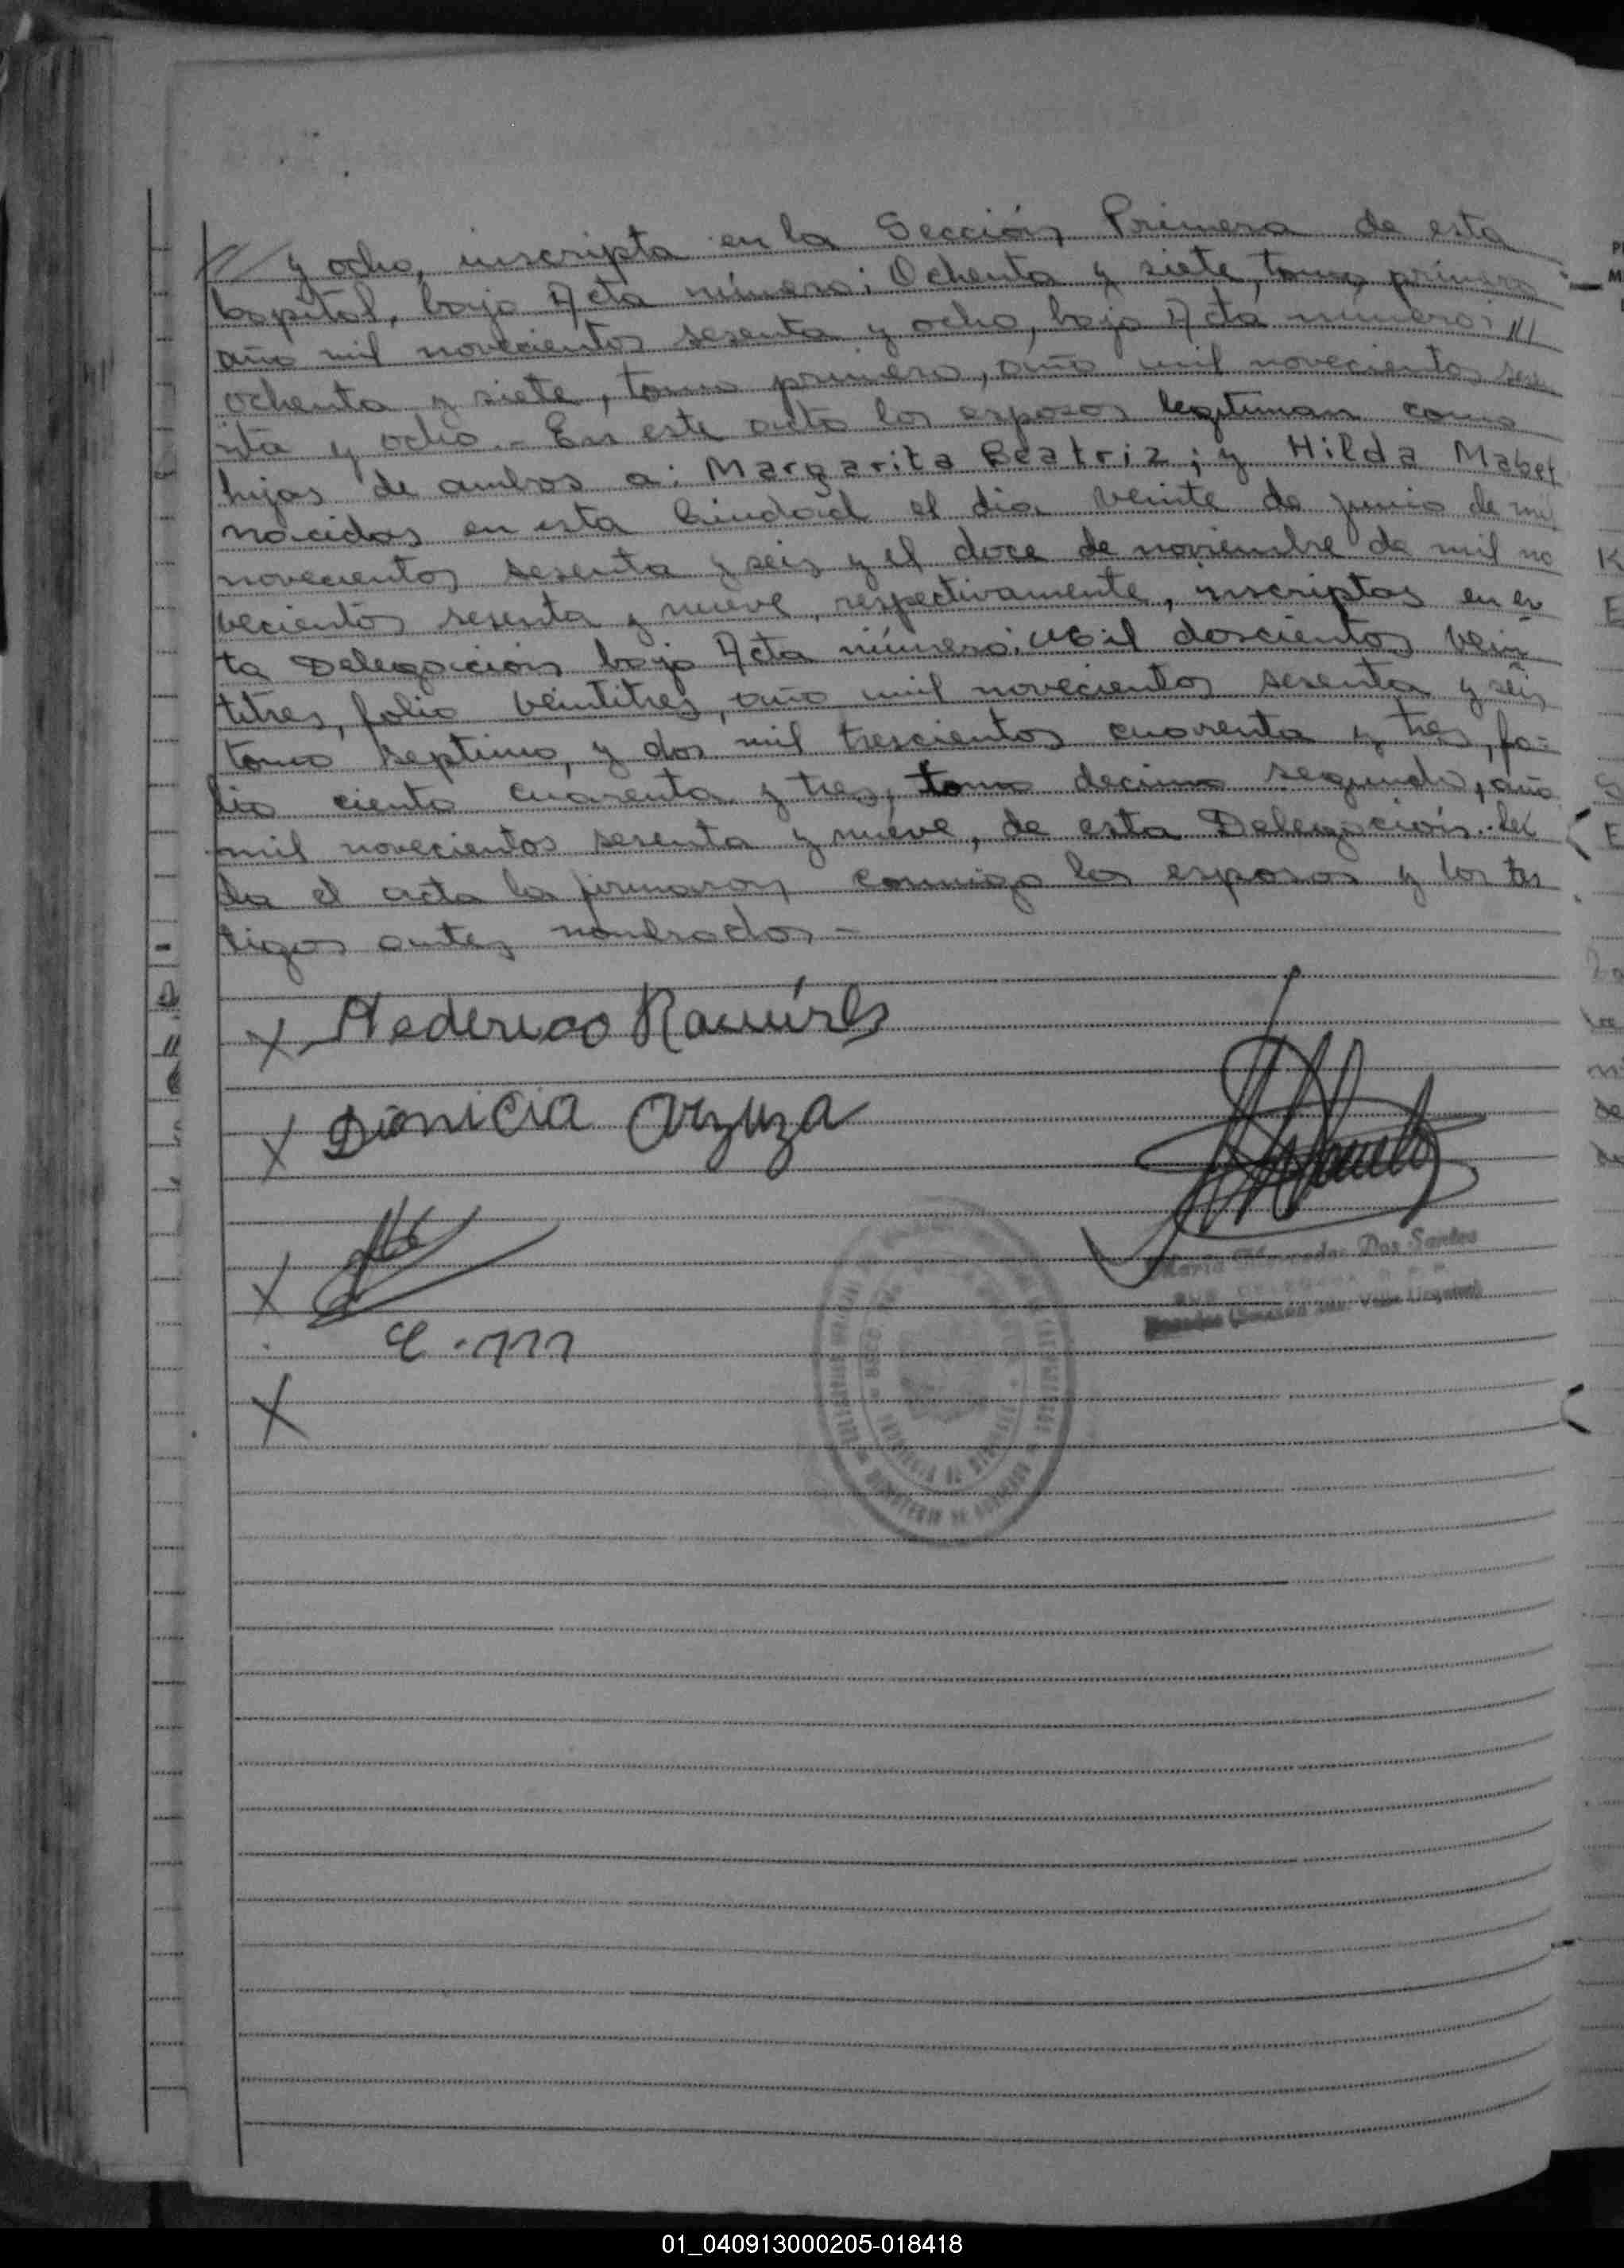 // y ocho, inscripta en la Sección Primera de esta
Capital, bajo Acta número: Ochenta y siete, tomo primero
año mil novecientos sesenta y ocho, bajo Acta número: ///
ochenta y siete, tomo primero, año mil novecientos sese
nta y ocho.- En este acto los esposos legitiman como
hijas de ambos a: Margarita Beatriz; y Hilda Mabel
nacidas en esta Ciudad el día veinte de junio de mil
novecientos sesenta y seis y el doce de noviembre de mil no
vecientos sesenta y nueve, respectivamente, inscriptas en es
ta Delegación bajo Acta número: Mil doscientos vein
titres, folio veintitres, año mil novecientos sesenta y seis
tomo septimo, y dos mil trescientos cuarenta y tres, fo=
lio ciento cuarenta y tres, tomo decimo segundo, año
mil novecientos sesenta y nueve, de esta Delegación. Leí
da el acta la firmaron conmigo los esposos y los tes
tigos antes nombrados -
X Federico Ramírez
X Dionicia Arzuza
X
X
Dos Santos
Villa Urquiza
01_040913000205-018418